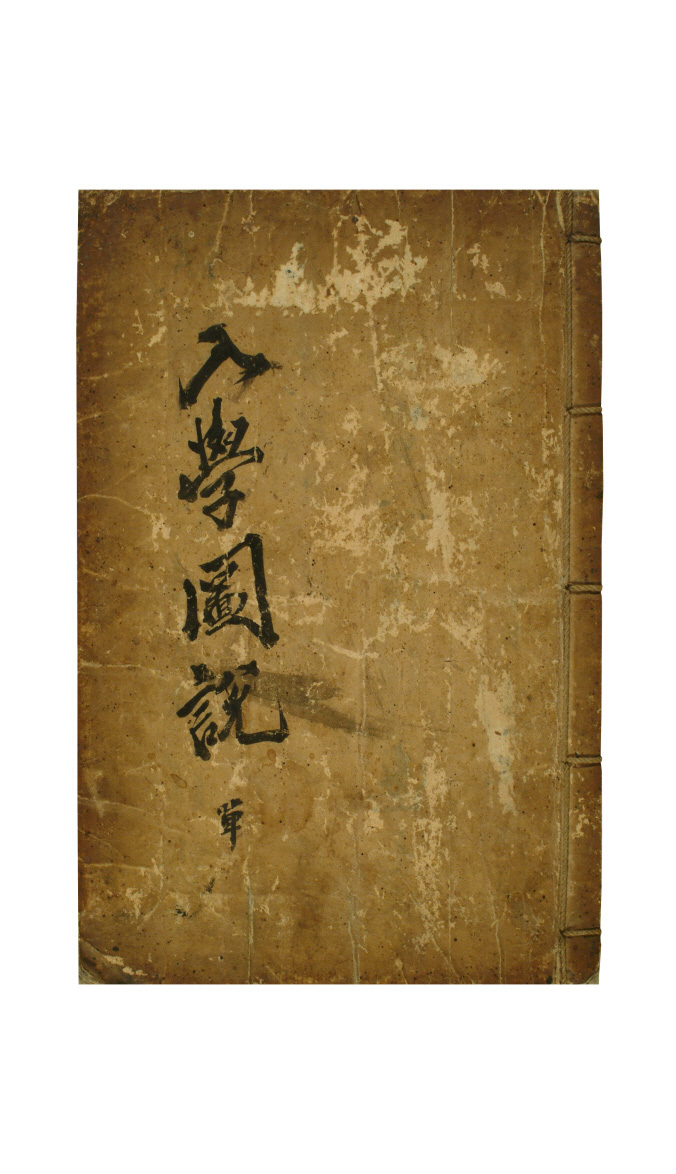 入學圖說 單